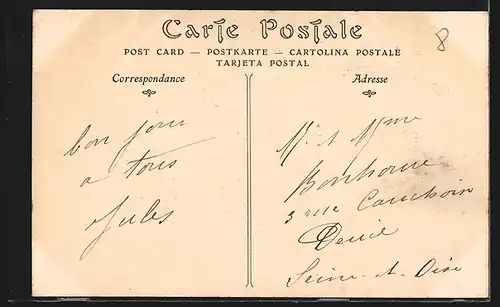 Carte Postale
8
POST CARD — POSTKARTE — CARTOLINA POSTALE
TARJETA POSTAL
Correspondance
Adresse
bon jour
a tous
Jules
Mr et Mme
Bonhoure
3 rue Cauchoix
Deuil
Seine-et-Oise